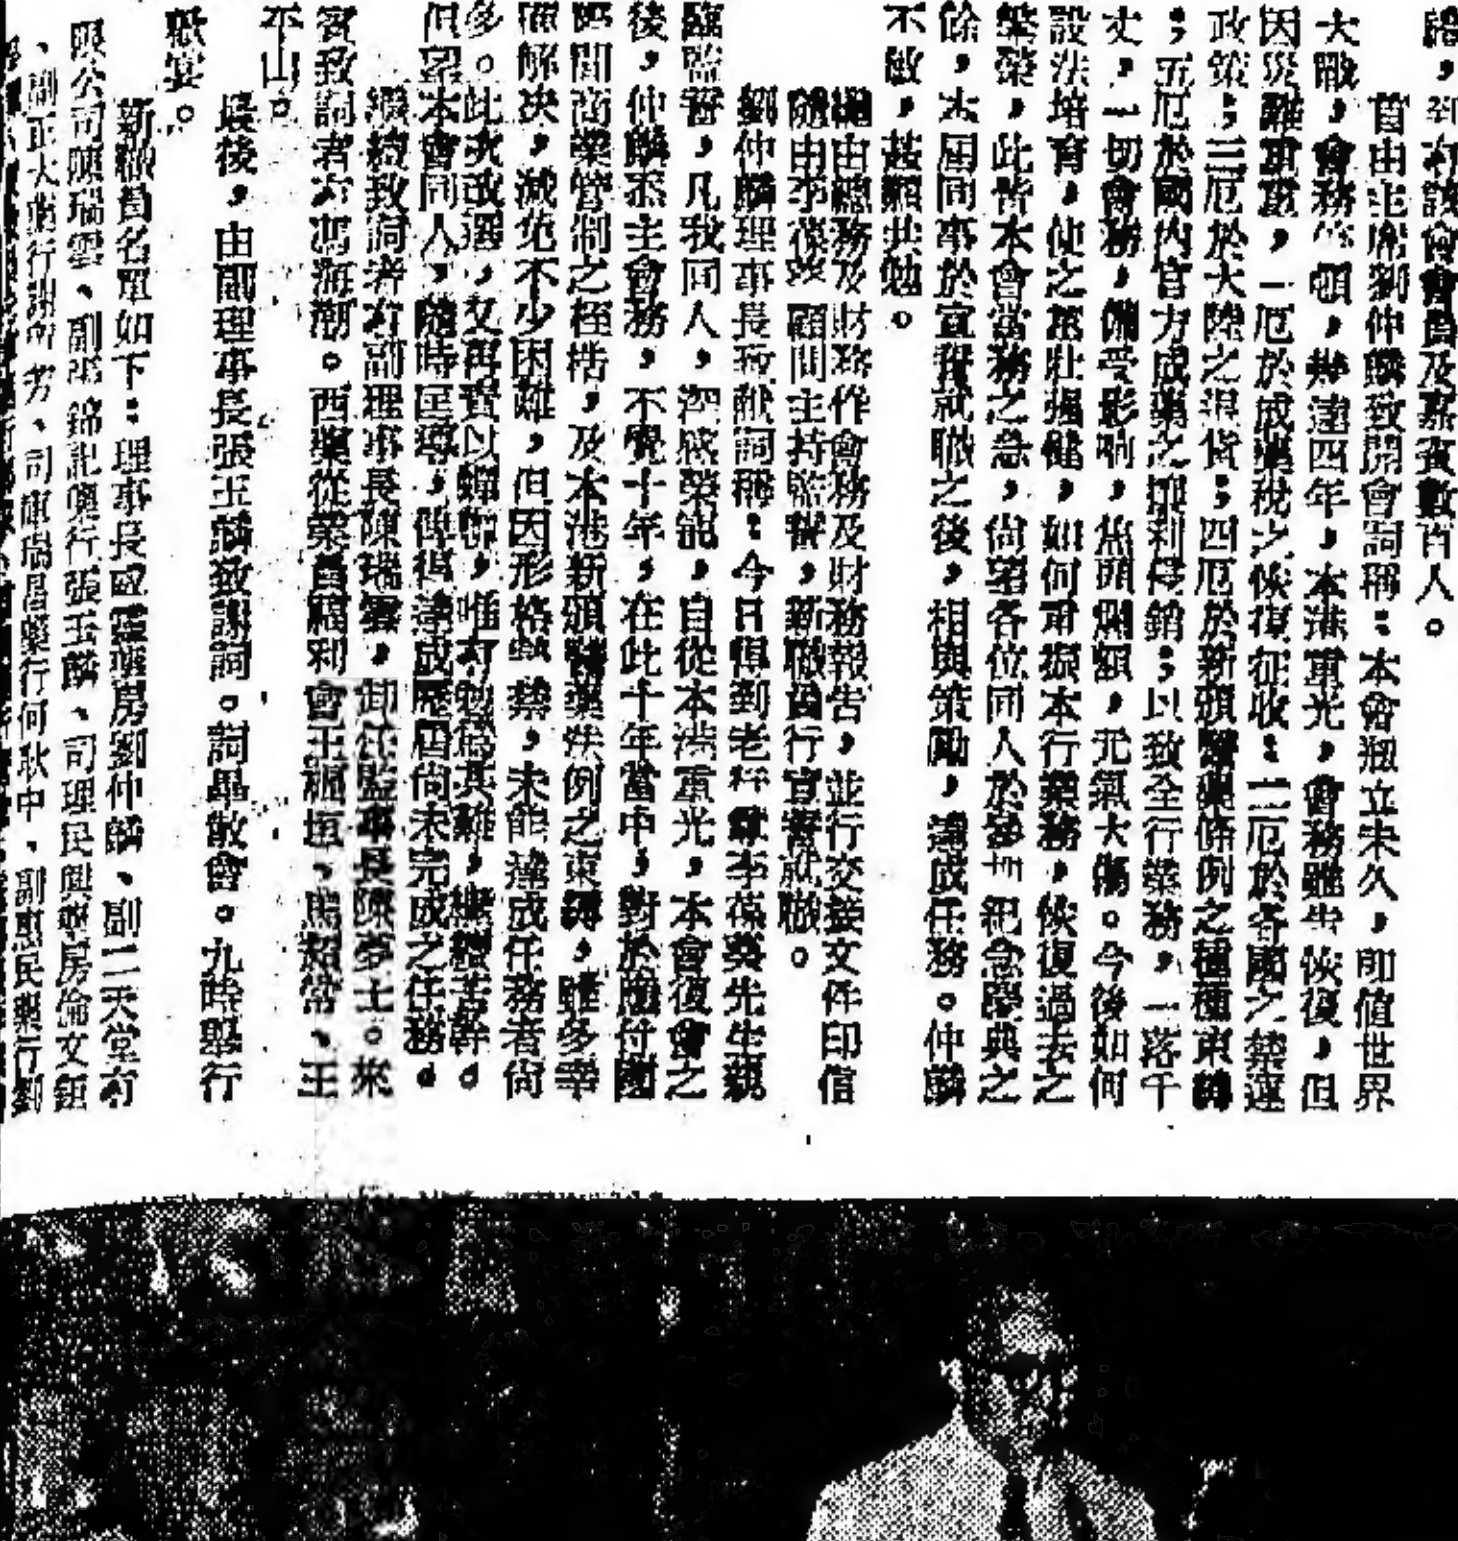 到有該會會員及嘉賓數百人。
首由主席劉仲麟致開會詞稱：本會創立未久，即值世界
大戰，會務停頓，幾達四年，本港重光，會務雖告恢復，但
因災難重重，一厄於成藥稅之恢復征收；二厄於各國之禁運
政策；三厄於大陸之退貨；四厄於新頒醫藥條例之種種束縛
；五厄於國內官方成藥之擴利傾銷；以致全行業務，一落千
丈，一切會務，備受影响，焦頭爛額，元氣大傷。今後如何
設法培育，使之茁壯強健，如何重振本行業務，恢復過去之
繁榮，此皆本會當務之急，尚望各位同人於參加紀念慶典之
餘，本屆同事於宣誓就職之後，相與策勵，達成任務。仲麟
不敏，甚願共勉。
繼由總務及財務作會務及財務報告，並行交接文件印信
隨由李葆葵顧問主持監誓，新職員行宣誓就職。
劉仲麟理事長致献詞稱：今日得到老秤李葆葵先生親
臨監誓，凡我同人，深感榮寵，自從本港重光，本會復會之
後，仲麟忝主會務，不覺十年，在此十年當中，對於應付
際間商業管制之桎梏，及本港新頒醫藥法例之束縛，雖多幸
解决，減免不少困難，但因形格勢禁，未能達成任務者尚
多。此次改選，又再責以蟬聯，唯有勉為其難，繼續苦幹。
但望本會同人，隨時匡導，俾得達成歷屆尚未完成之任務。
繼續致詞者有副理事長陳瑞雲，卸任監事長陳夢士。來
賓致詞者有馮海潮。西藥從業員福利會王珮垣、馬超常、王
不山。
最後，由副理事長張玉麟致謝詞。詞畢散會。九時舉行
歡宴。
新職員名單如下：理事長威靈藥房劉仲麟、副二天堂有
限公司陳瑞雲、副張錦記藥行張玉麟、司理民興藥房倫文鈕
、副正大藥行、司庫瑞昌藥行何秋中、副惠民藥行劉